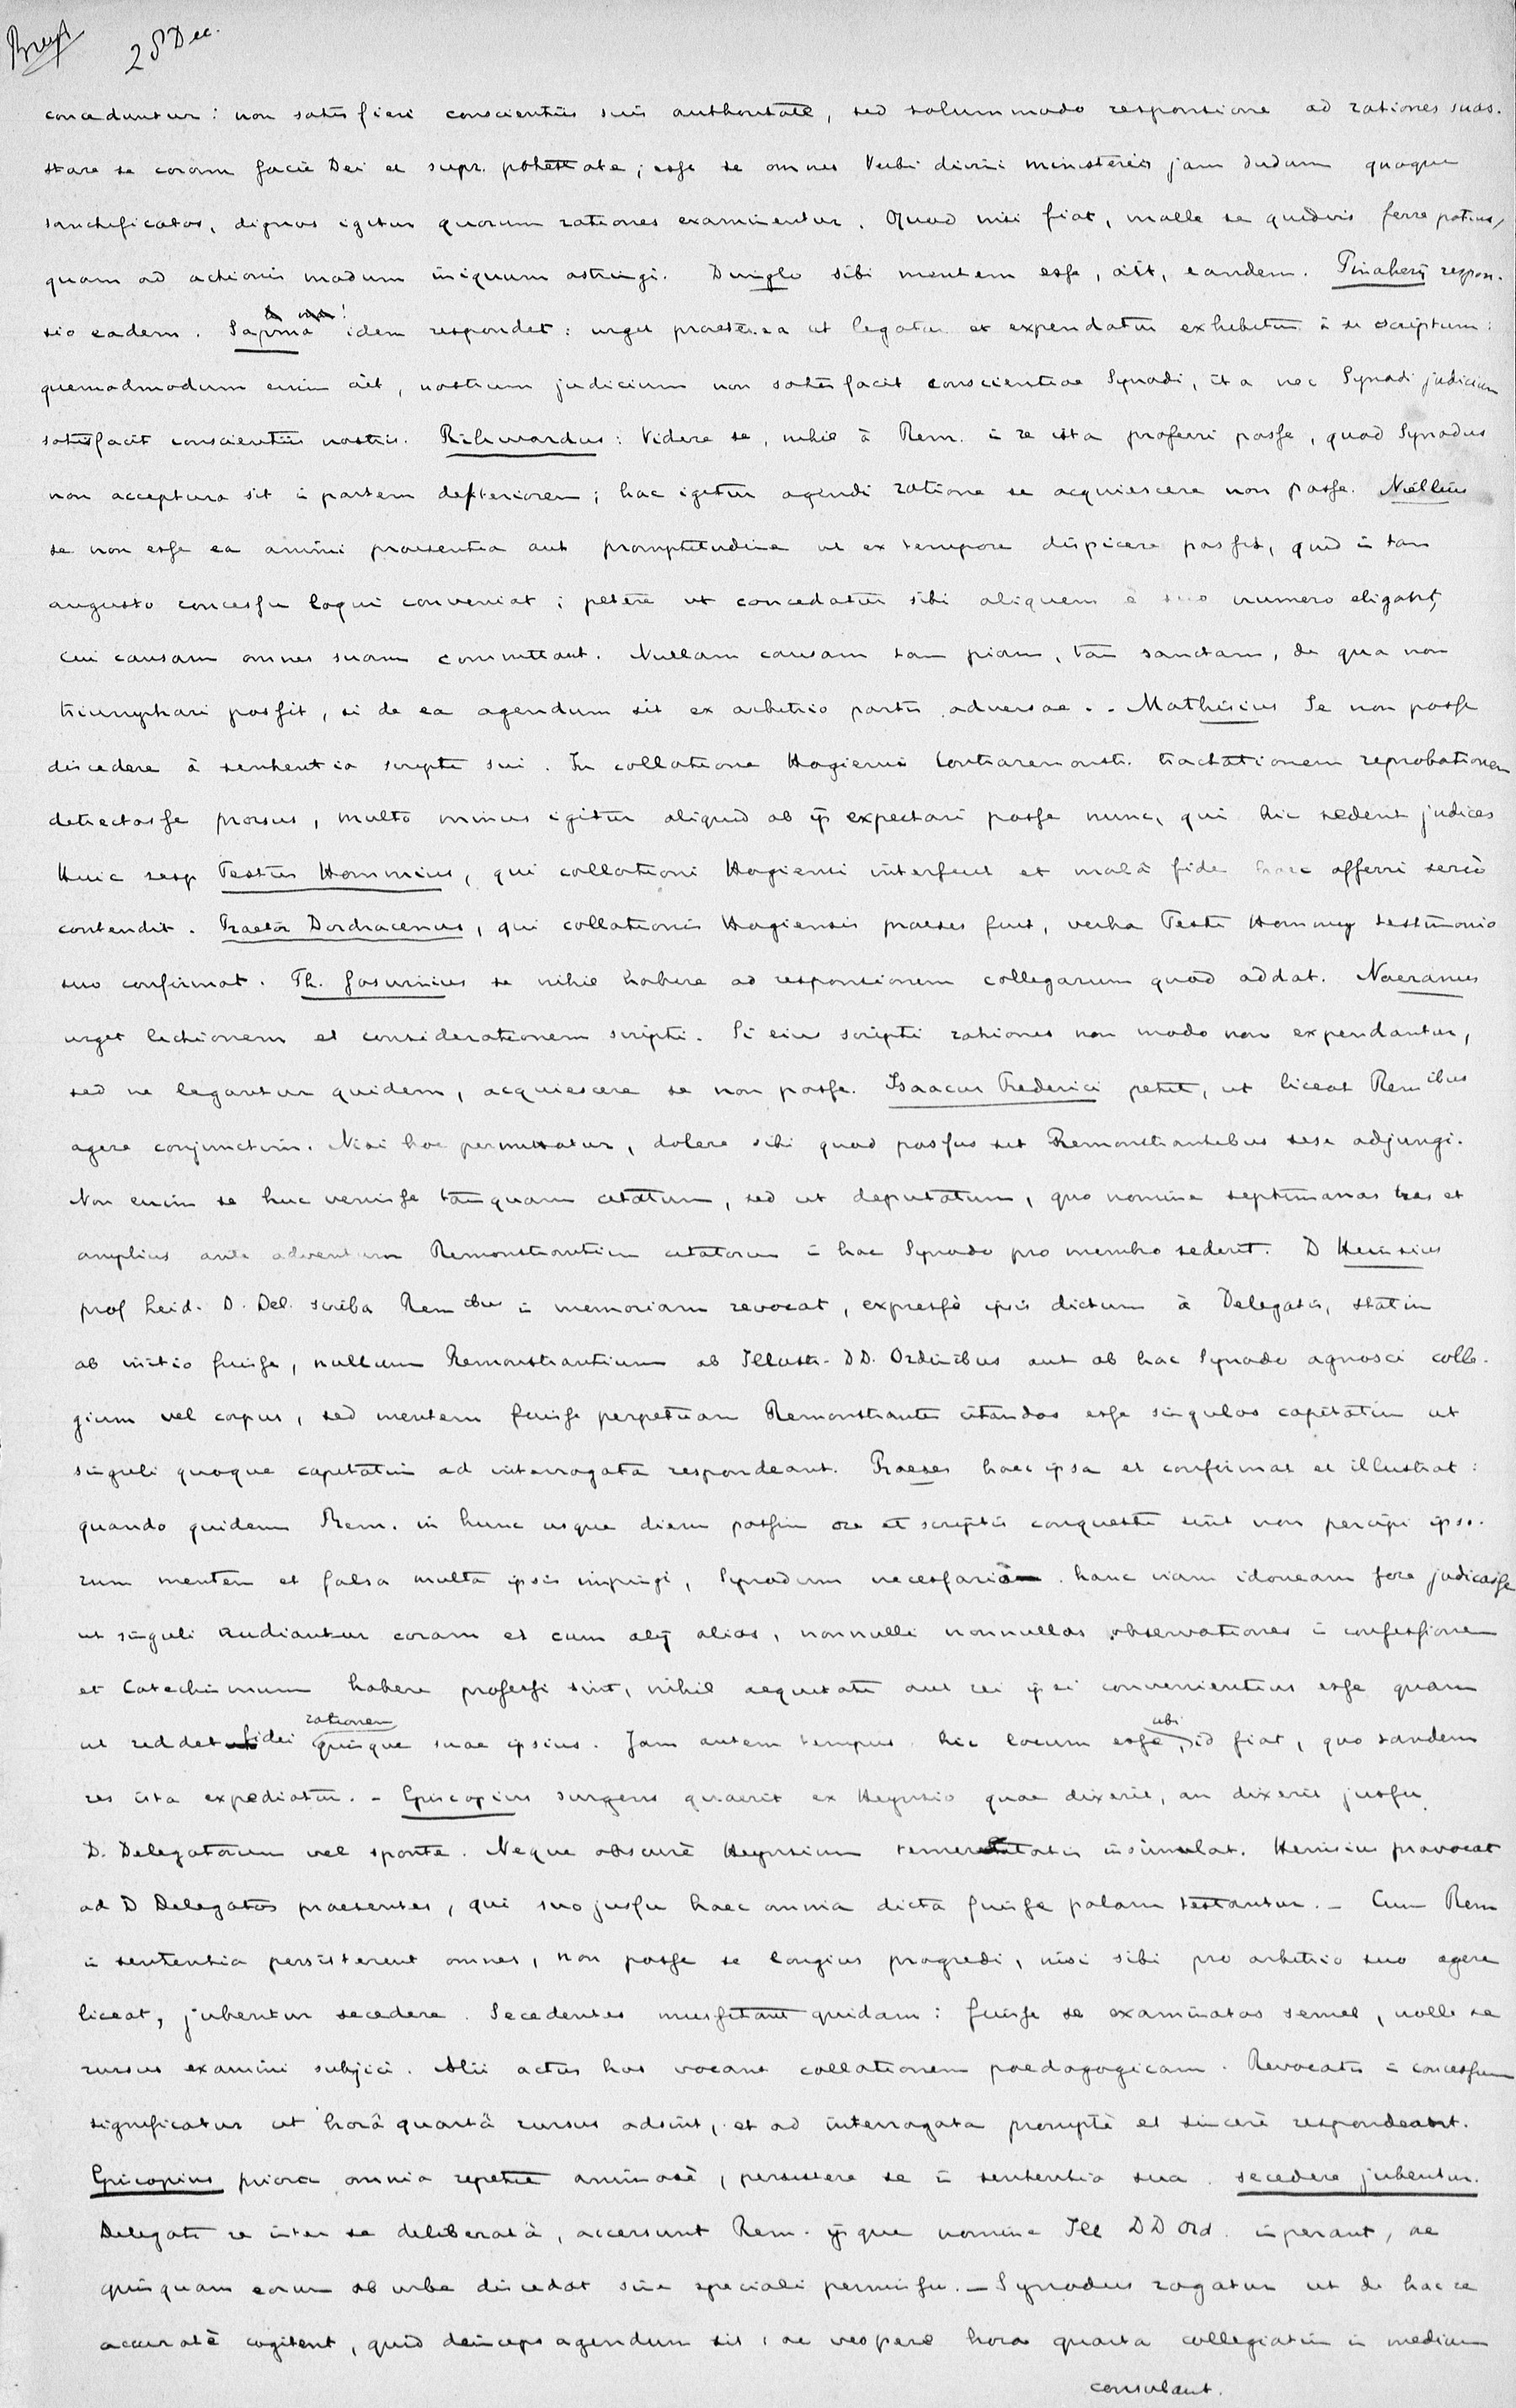 28 Dec.
conceduntur: non satis fieri conscientiis suis authoritate, sed solummodo responsione ad rationes suas.
stare se coram facie Dei et supr. potestate; esse se omnes Verbi divini ministeriis jam dudum quoque
sanctificatos, dignos igitur quorum rationes examinentur. Quod nisi fiat, malle se quidvis ferre potius,
quam ad actionis modum iniquum astringi. Dwinglo sibi mentem esse, ait, eandem. Pinakerij respon-
sio eadem. Sapma idem respondet: urget praeterea ut legatur et expendatur exhibitum à se scriptum:
quemadmodum enim ait, nostrum judicium non satisfacit conscientiae Synodi, ita nec Synodi judicium
satisfacit conscientiis nostris. Rickwardus: Videre se, nihil à Rem. in re ista proferri posse, quod Synodus
non acceptura sit in partem deteriorem; hac igitur agendi ratione se acquiescere non posse. Niëllius
se non esse ea animi praesentia aut promptitudine ut ex tempore dispicere possit, quid in tam
augusto concessu loqui conveniat; petere ut concedatur sibi aliquem è suo numero eligant,
cui causam omnes suam committant. Nullam causam tam piam, tam sanctam, de qua non
triumphari possit, si de ea agendum sit ex arbitrio partis adversae. - Mathisius Se non posse
discedere à sententia scripti sui. In collatione Hagiensi Contraremonstr. tractationem reprobationem
detrectasse prorsus, multo minus igitur aliquid ab ijs expectari posse nunc, qui hic sedent judices
Huic resp Festus Hommius, qui collationi Hagiensi interfuit et malâ fide haec afferri seriò
contendit. Praetor Dordracenus, qui collationis Hagiensis praeses fuit, verba Festi Hommij testimonio
suo confirmat. Th. Gosuinius se nihil habere ad responsionem collegarum quod addat. Naeranus
urget lectionem et considerationem scripti. Si ejus scripti rationes non modo non expendantur,
sed ne legantur quidem, acquiescere se non posse. Isaacus Frederici petit, ut liceat Remibus
agere conjunctim. Nisi hoc permittatur, dolere sibi quod passus sit Remonstrantibus sese adjungi.
Non enim se huc venisse tanquam citatum, sed ut deputatum, quo nomine septimanas tres et
amplius ante adventum Remonstrantium citatorum in hac Synodo pro membro sederit. D Heinsius
prof Leid. D. Del. scriba Remibus in memoriam revocat, expressè ipsis dictum à Delegatis, statim
ab initio fuisse, nullum Remonstrantium ab Illustr. DD. Ordinibus aut ab hac Synodo agnosci colle-
gium vel corpus, sed mentem fuisse perpetuam Remonstrantes citandos esse singulos capitatim ut
singuli quoque capitatim ad interrogata respondeant. Praeses haec ipsa et confirmat et illustrat:
quando quidem Rem. in hunc usque diem passim ore et scriptis conquesti sint non percipi ipso-
rum mentem et falsa multa ipsis impingi, Synodum necessariò hanc viam idoneam fore judicasse
ut singuli audiantur coram et cum alij alias, nonnulli nonnullas observationes in confessionem
et Catechismum habere professi sint, nihil aequitati aut rei ipsi convenientius esse quam
ut reddat fidei rationem quisque suae ipsius. Jam autem tempus hic locum esse, ubi id fiat, quo tandem
res ista expediatur. - Episcopius surgens quaerit ex Heynsio quae dixerit, an dixerit jussu
D. Delegatorum vel sponte. Neque obscurè Heynsium temeritatis insimulat. Heinsius provocat
ad D Delegatos praesentes, qui suo jussu haec omnia dicta fuisse palam testantur. - Cum Rem
in sententia persisterent omnes, non posse se longius progredi, nisi sibi pro arbitrio suo agere
liceat, jubentur secedere. Secedentes mussitant quidam: fuisse se examinatos semel, nolle se
rursus examini subjici. Alii actus hos vocant collationem paedagogicam. Revocatis in concessum
significatur ut horâ quartâ rursus adsint, et ad interrogata promptè et sincerè respondeant.
Episcopius priora omnia repetit animosè, persistere se in sententia sua. secedere jubentur.
Delegati re inter se deliberatâ, accersunt Rem. ijsque nomine Ill DD Ord. imperant, ne
quisquam eorum ab urbe discedat sine speciali permissu. - Synodus rogatur ut de hac re
accuratè cogitent, quid deinceps agendum sit, ac vespere hora quarta collegiatim in medium
consulant.